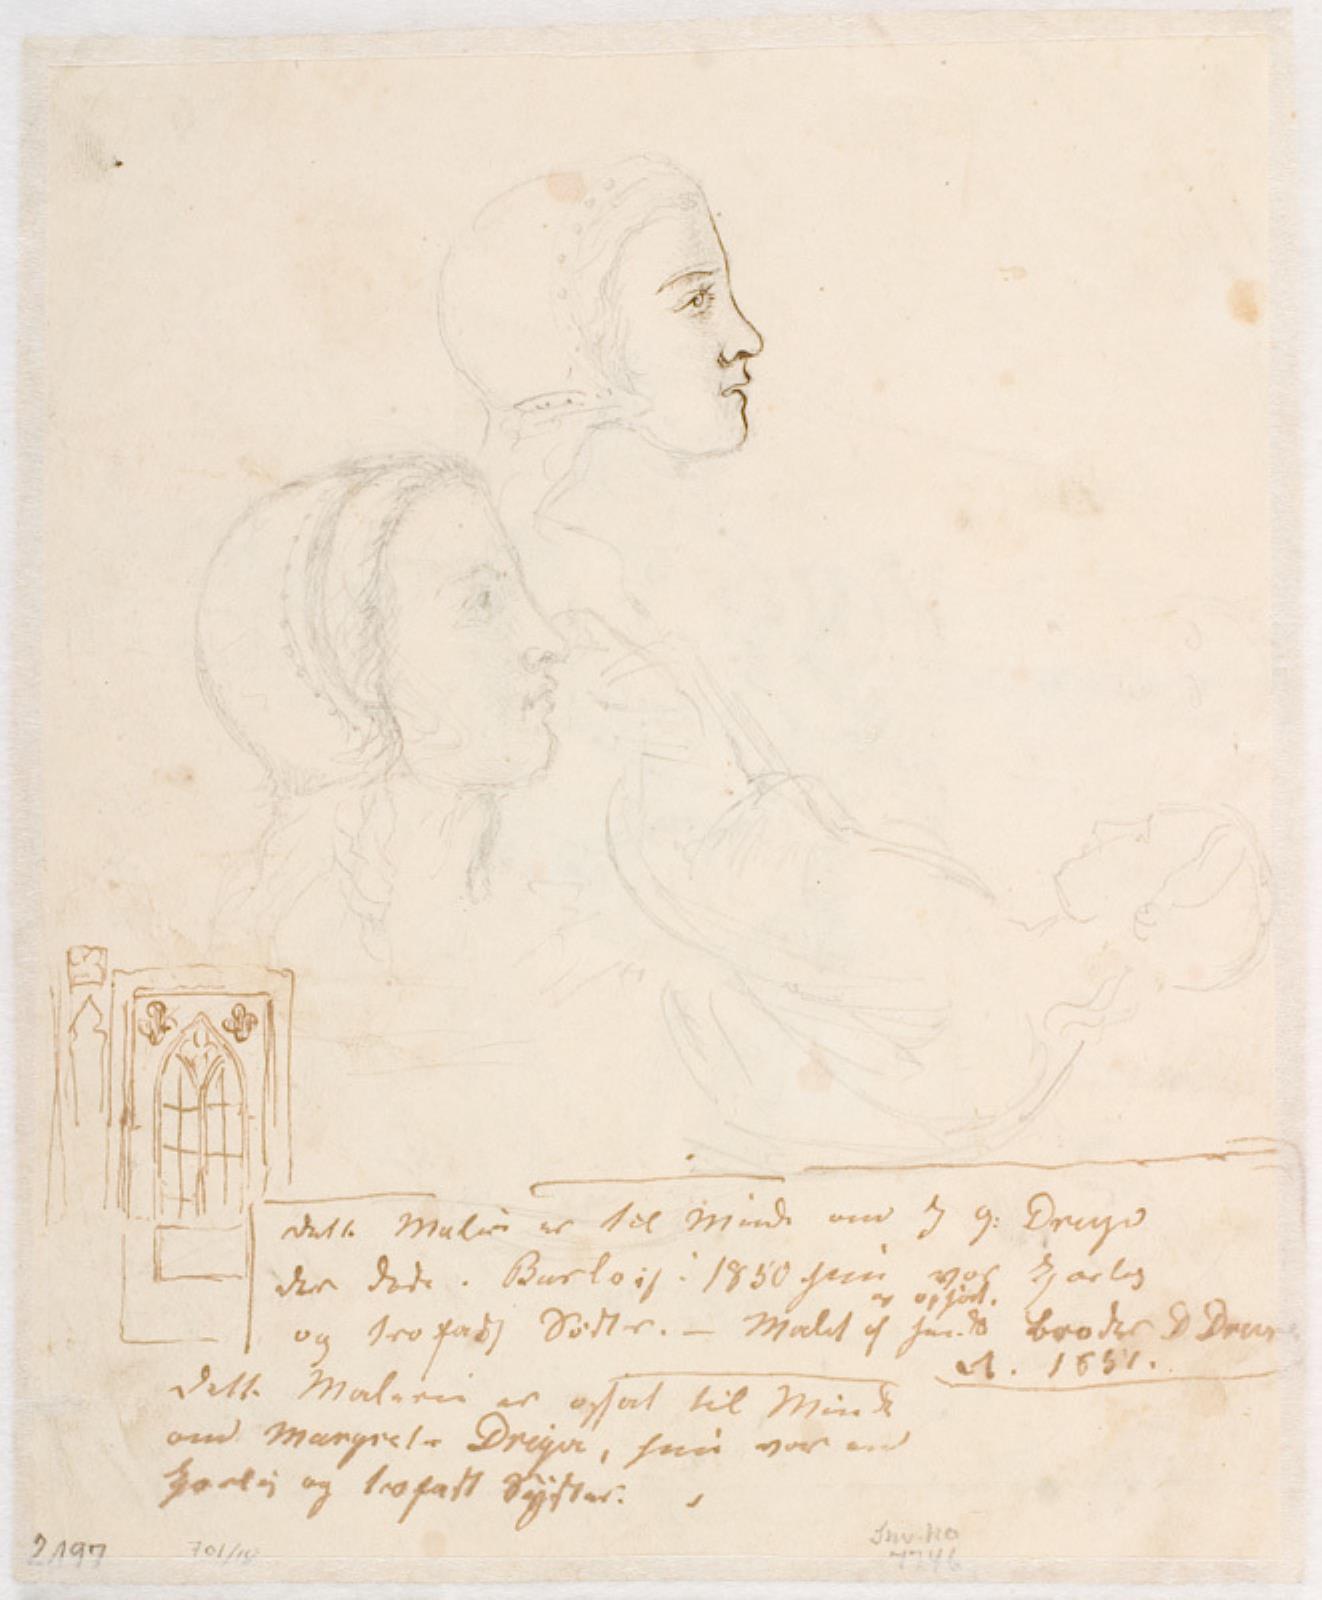 dette Maleri er til Minde om J g: Dreyer
der døde . 1850 hun var kjærlig
er opsat.
og trofast Søster. – Malet af hendes broder D Dreyer
A. 1851.
dette Maleri er opsat til Minde
om Margrete Dreyer, hun var en
kjærlig og trofast Syster.
2197 701/18 Inv. No
7746